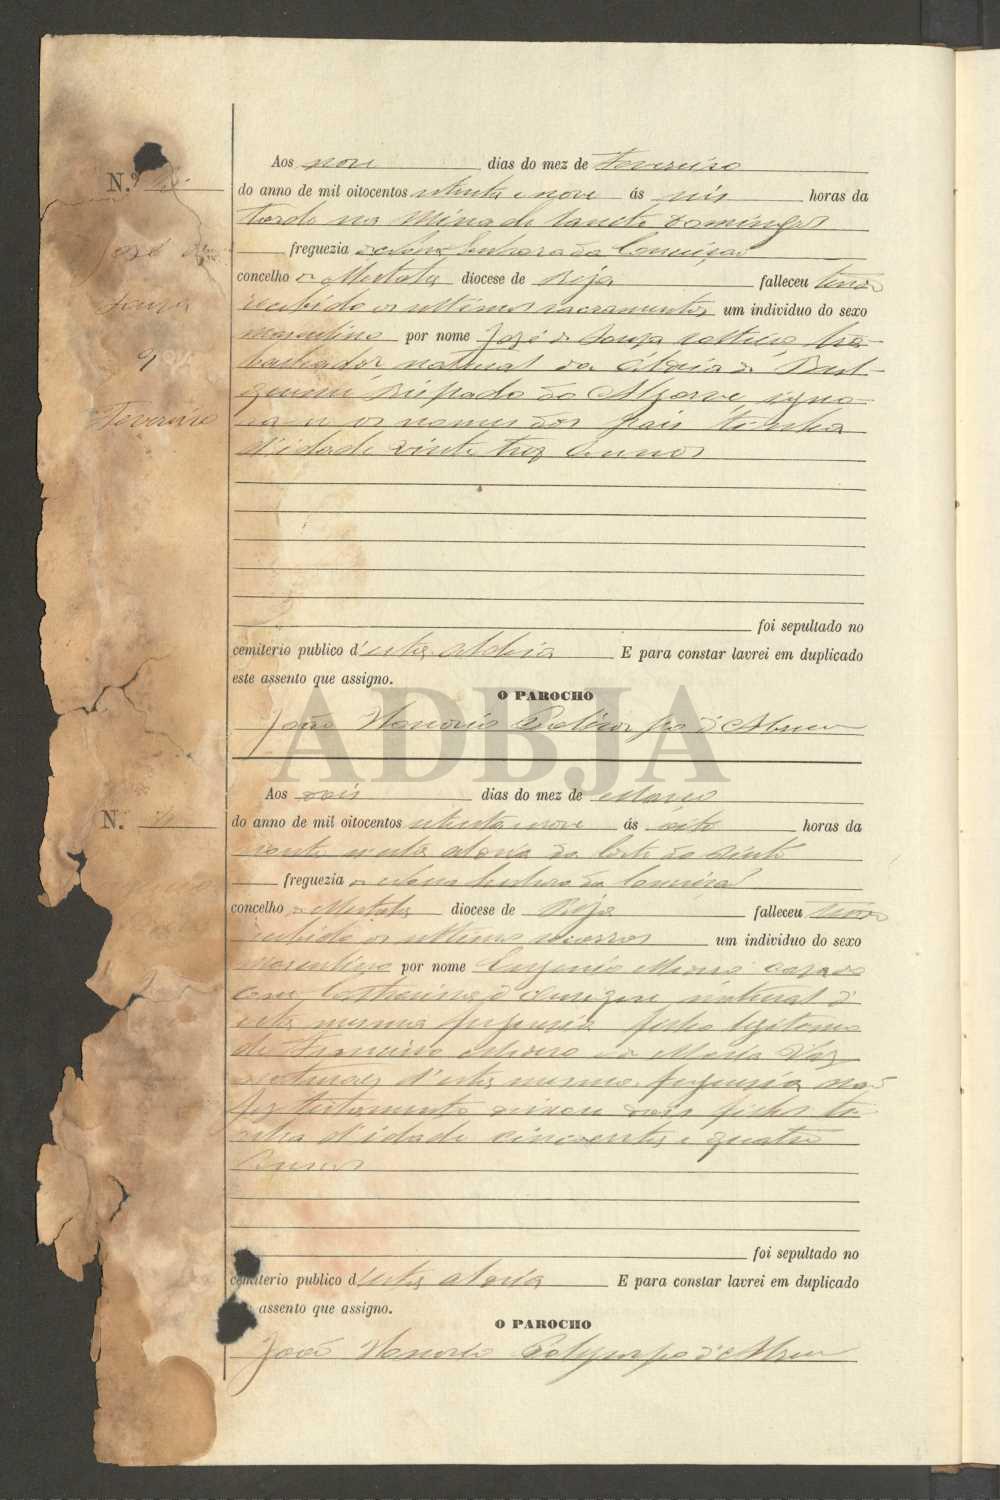 Aos nove dias do mez de Fevereiro
N.º
do anno de mil oitocentos oitenta e nove ás seis horas da
tarde na Mina de Sancto Domingos
José de
freguezia de Nossa Senhora da Conceição
concelho de Mertola diocese de Beja falleceu tendo
Souza
recebido os ultimos sacramentos um individuo do sexo
masculino por nome José de Souza solteiro tra-
9
balhador natural da Aldeia de
Bispado do Algarve, igno-
Fevereiro
ra-se os nomes dos pais tinha
d'idade vinte trez annos
foi sepultado no
cemiterio publico d'esta aldeia E para constar lavrei em duplicado
este assento que assigno.
O PAROCHO
João Honorio Policarpo d'Abreu
ADBJA
Aos dois dias do mez de Março
N.
do anno de mil oitocentos oitenta e nove ás oito horas da
noute n'esta aldeia da Corte do Pinto
freguezia de Nossa Senhora da Conceição
concelho de Mertola diocese de Beja falleceu tendo
recebido os ultimos socorros um individuo do sexo
masculino por nome Eugenio casado
com Catharina natural d'
esta mesma freguesia filho legitimo
de Francisco e de Maria Vaz
naturaes d'esta mesma freguesia não
fez testamento deixou dois filhos ti-
nha d'idade cincoenta e quatro
annos
foi sepultado no
cemiterio publico d'esta aldeia E para constar lavrei em duplicado
assento que assigno.
O PAROCHO
João Honorio Polycarpo d'Abreu